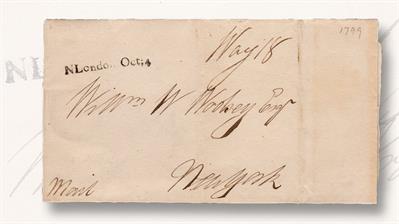 1799
Way 18
NLondon Oct: 4
Willm W Woolsey Esqr
New York
Mail